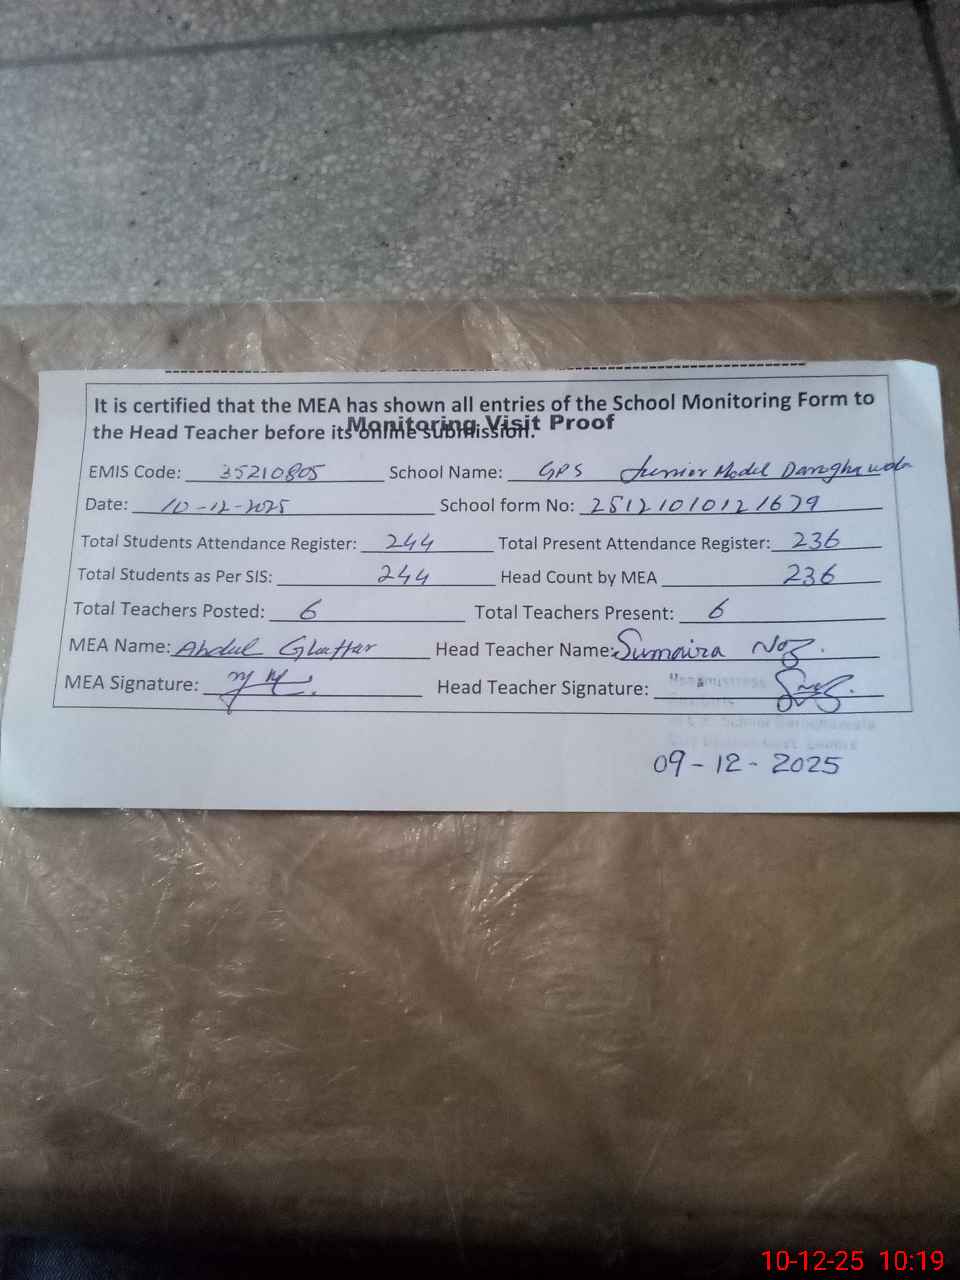 It is certified that the MEA has shown all entries of the School Monitoring Form to
the Head Teacher before its online submission.
Monitoring Visit Proof
EMIS Code: 35210805 School Name: GPS Junior Model Daroghawala
Date: 10-12-2025 School form No: 25121010121679
Total Students Attendance Register: 244 Total Present Attendance Register: 236
Total Students as Per SIS: 244 Head Count by MEA 236
Total Teachers Posted: 6 Total Teachers Present: 6
MEA Name: Abdul Ghaffar Head Teacher Name: Sumaira Naz.
MEA Signature: Head Teacher Signature:
09-12-2025
10-12-25 10:19